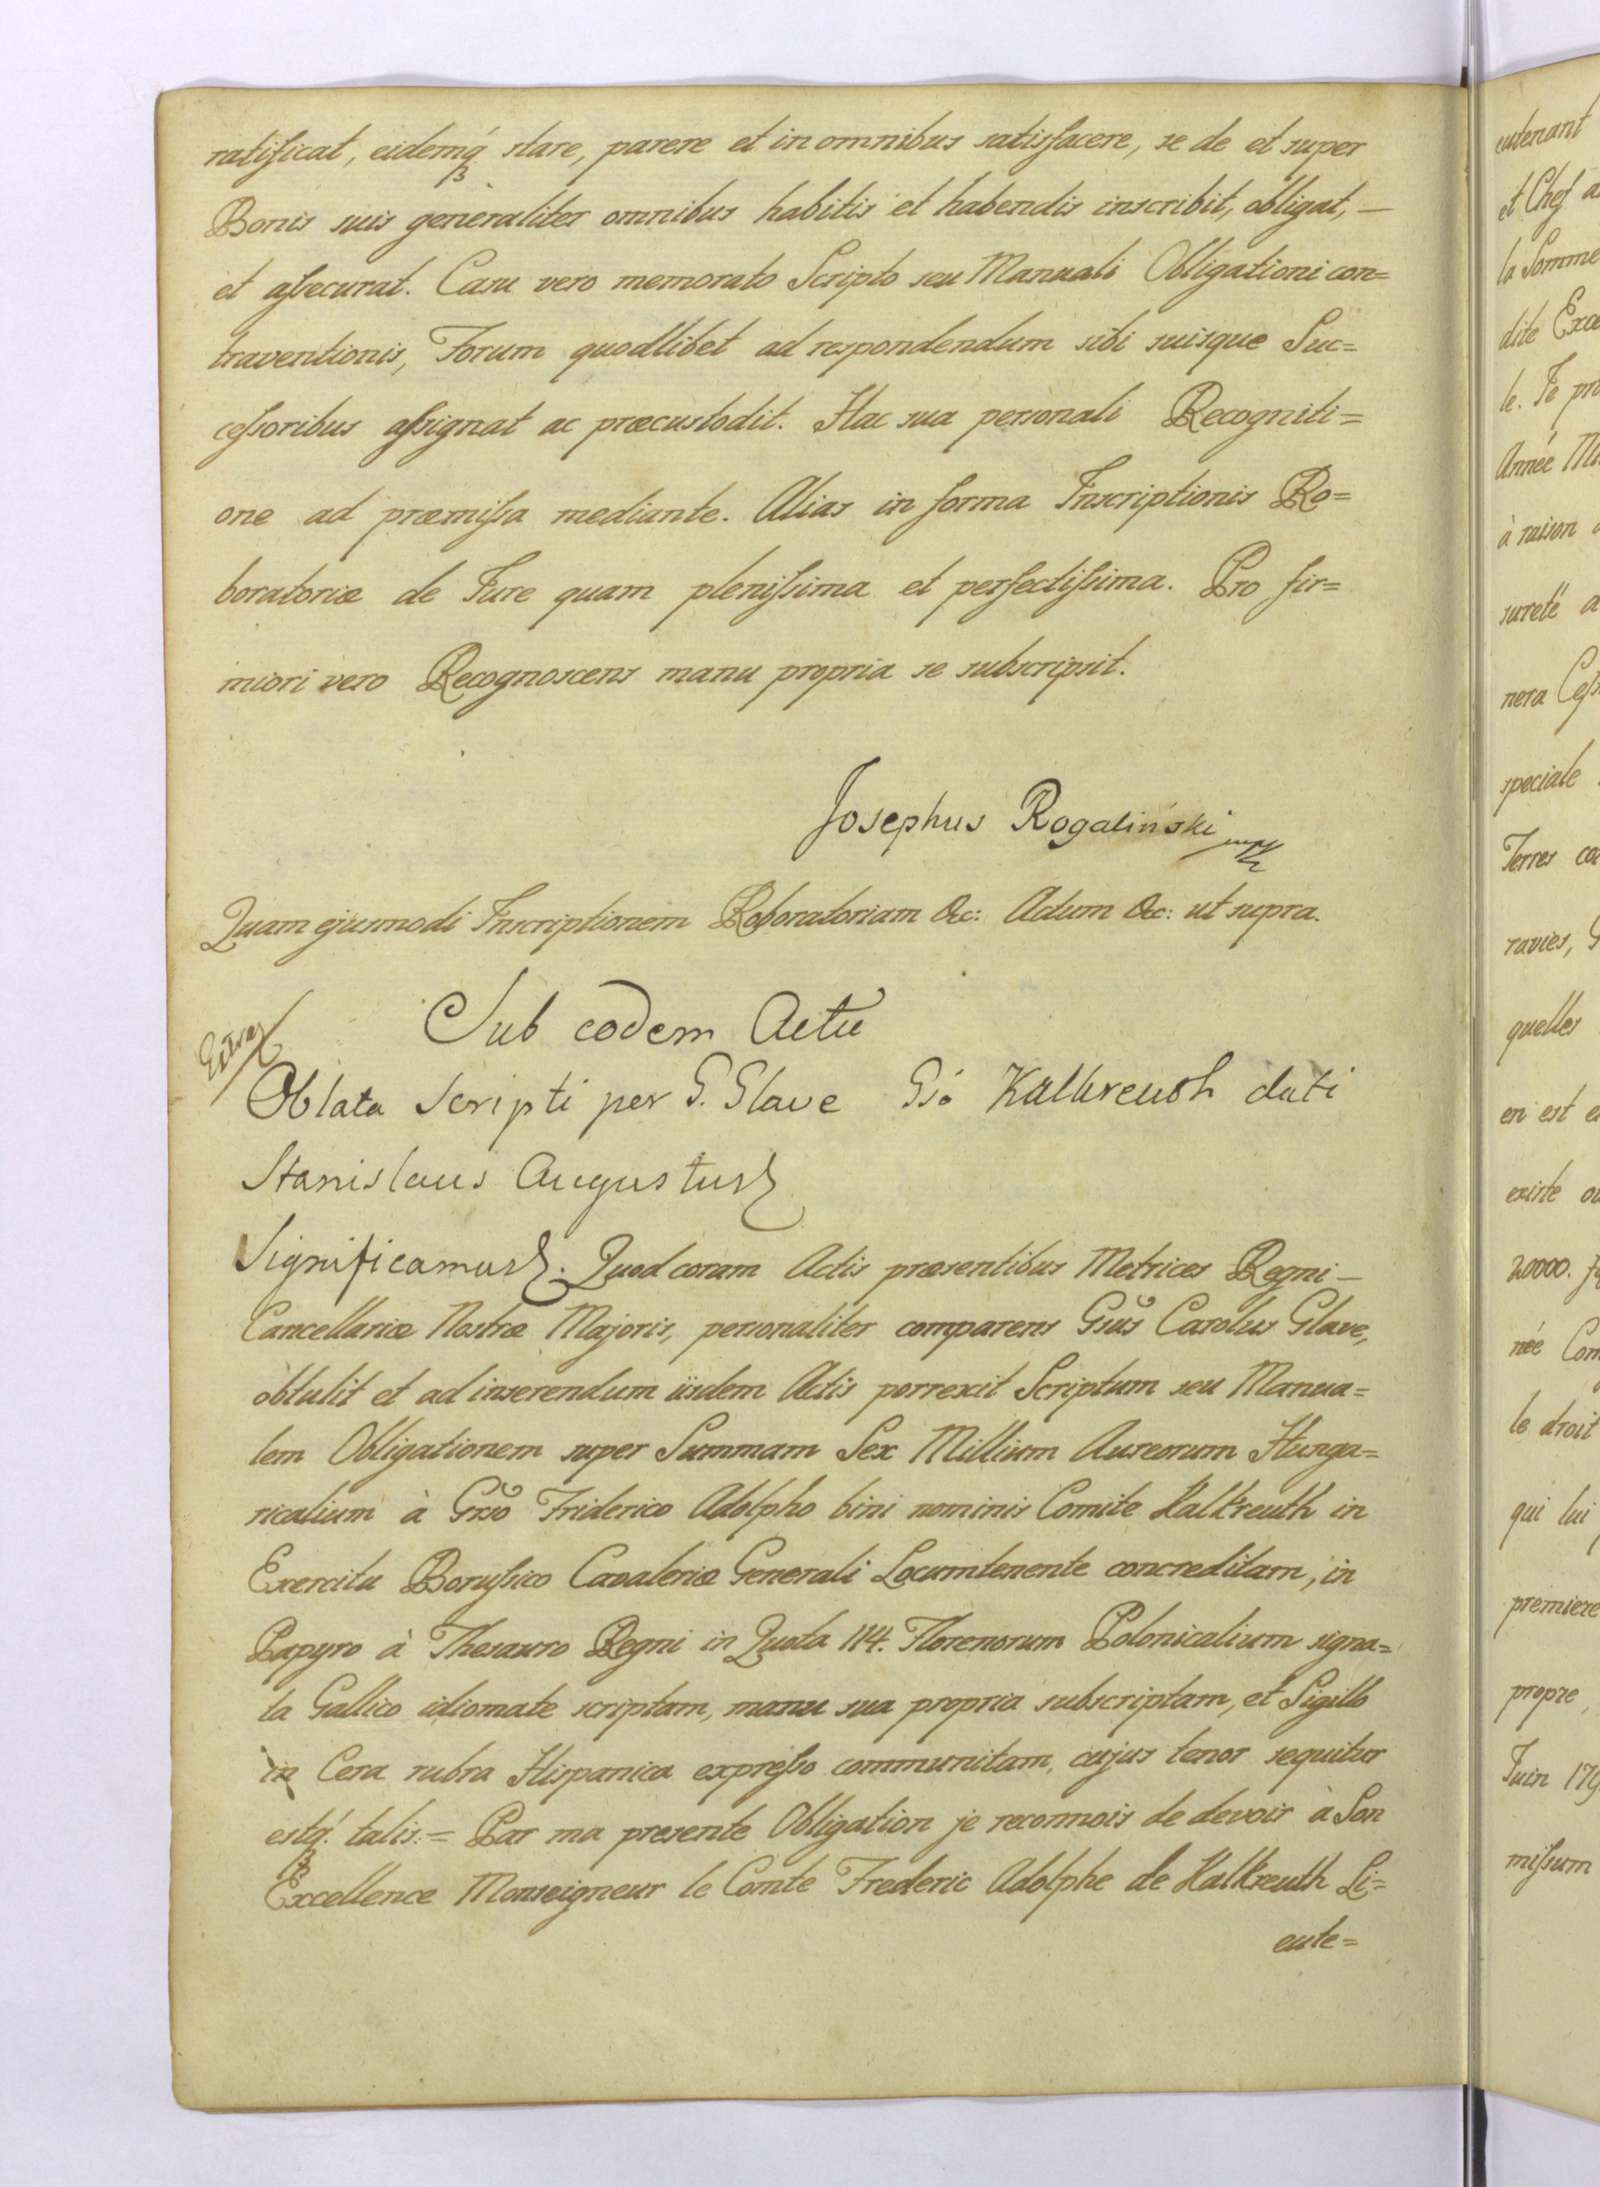 ratificat, eidemq́ꝫ stare, parere et in omnibus satisfacere, se de et super
Bonis suis generaliter omnibus habitis et habendis inscribit, obligat, —
et aſsecurat. Casu vero memorato Scripto seu Manuali Obligationi con=
traventionis, Forum quodlibet ad respondendum sibi suisque Suc=
ceſsoribus aſsignat ac præcustodit. Hac sua personali Recogniti=
one ad præmiſsa mediante. Alias in forma Inscriptionis Ro=
boratoriæ de Jure quam pleniſsima et perfectiſsima. Pro fir=
miori vero Recognoscens manu propria se subscripsit.
Josephus Rogaliński mpp
Quam ejusmodi Inscriptionem Roboratoriam &c: Actum &c: ut supra.
Sub eodem Actu
Extrad
Oblata Scripti per G. Glave Gsó Kalkreuth dati
Stanislaus Augustus
Significamus. Quod coram Actis præsentibus Metrices Regni —
Cancellariæ Nostræ Majoris, personaliter comparens Gsus Carolus Glave,
obtulit et ad inserendum iisdem Actis porrexit Scriptum seu Manua=
lem Obligationem super Summam Sex Millium Aureorum Hunga=
ricalium à Grso Friderico Adolpho bini nominis Comite Kalkreuth in
Exercitu Boruſsico Cavaleriæ Generali Locumtenente concreditam, in
Papyro à Thesauro Regni in Quota 114. Florenorum Polonicalium signa=
ta Gallico idiomate scriptam, manu sua propria subscriptam, et Sigillo
in Cera rubra Hispanica expreſso communitam, cujus tenor sequitur
estq́ꝫ talis: = Par ma presente Obligation je reconnois de devoir à Son
Excellence Monseigneur le Comte Frederic Adolphe de Kalkreuth Li=
eute=
eutenant
et Chef
la Somme
dite
le. Je
Année
à raison
sureté
nera
speciale
Terres
ravies,
quelles
en est
existe
20000.
née
le droit
qui lui
premiere
propre,
Juin
miſsum